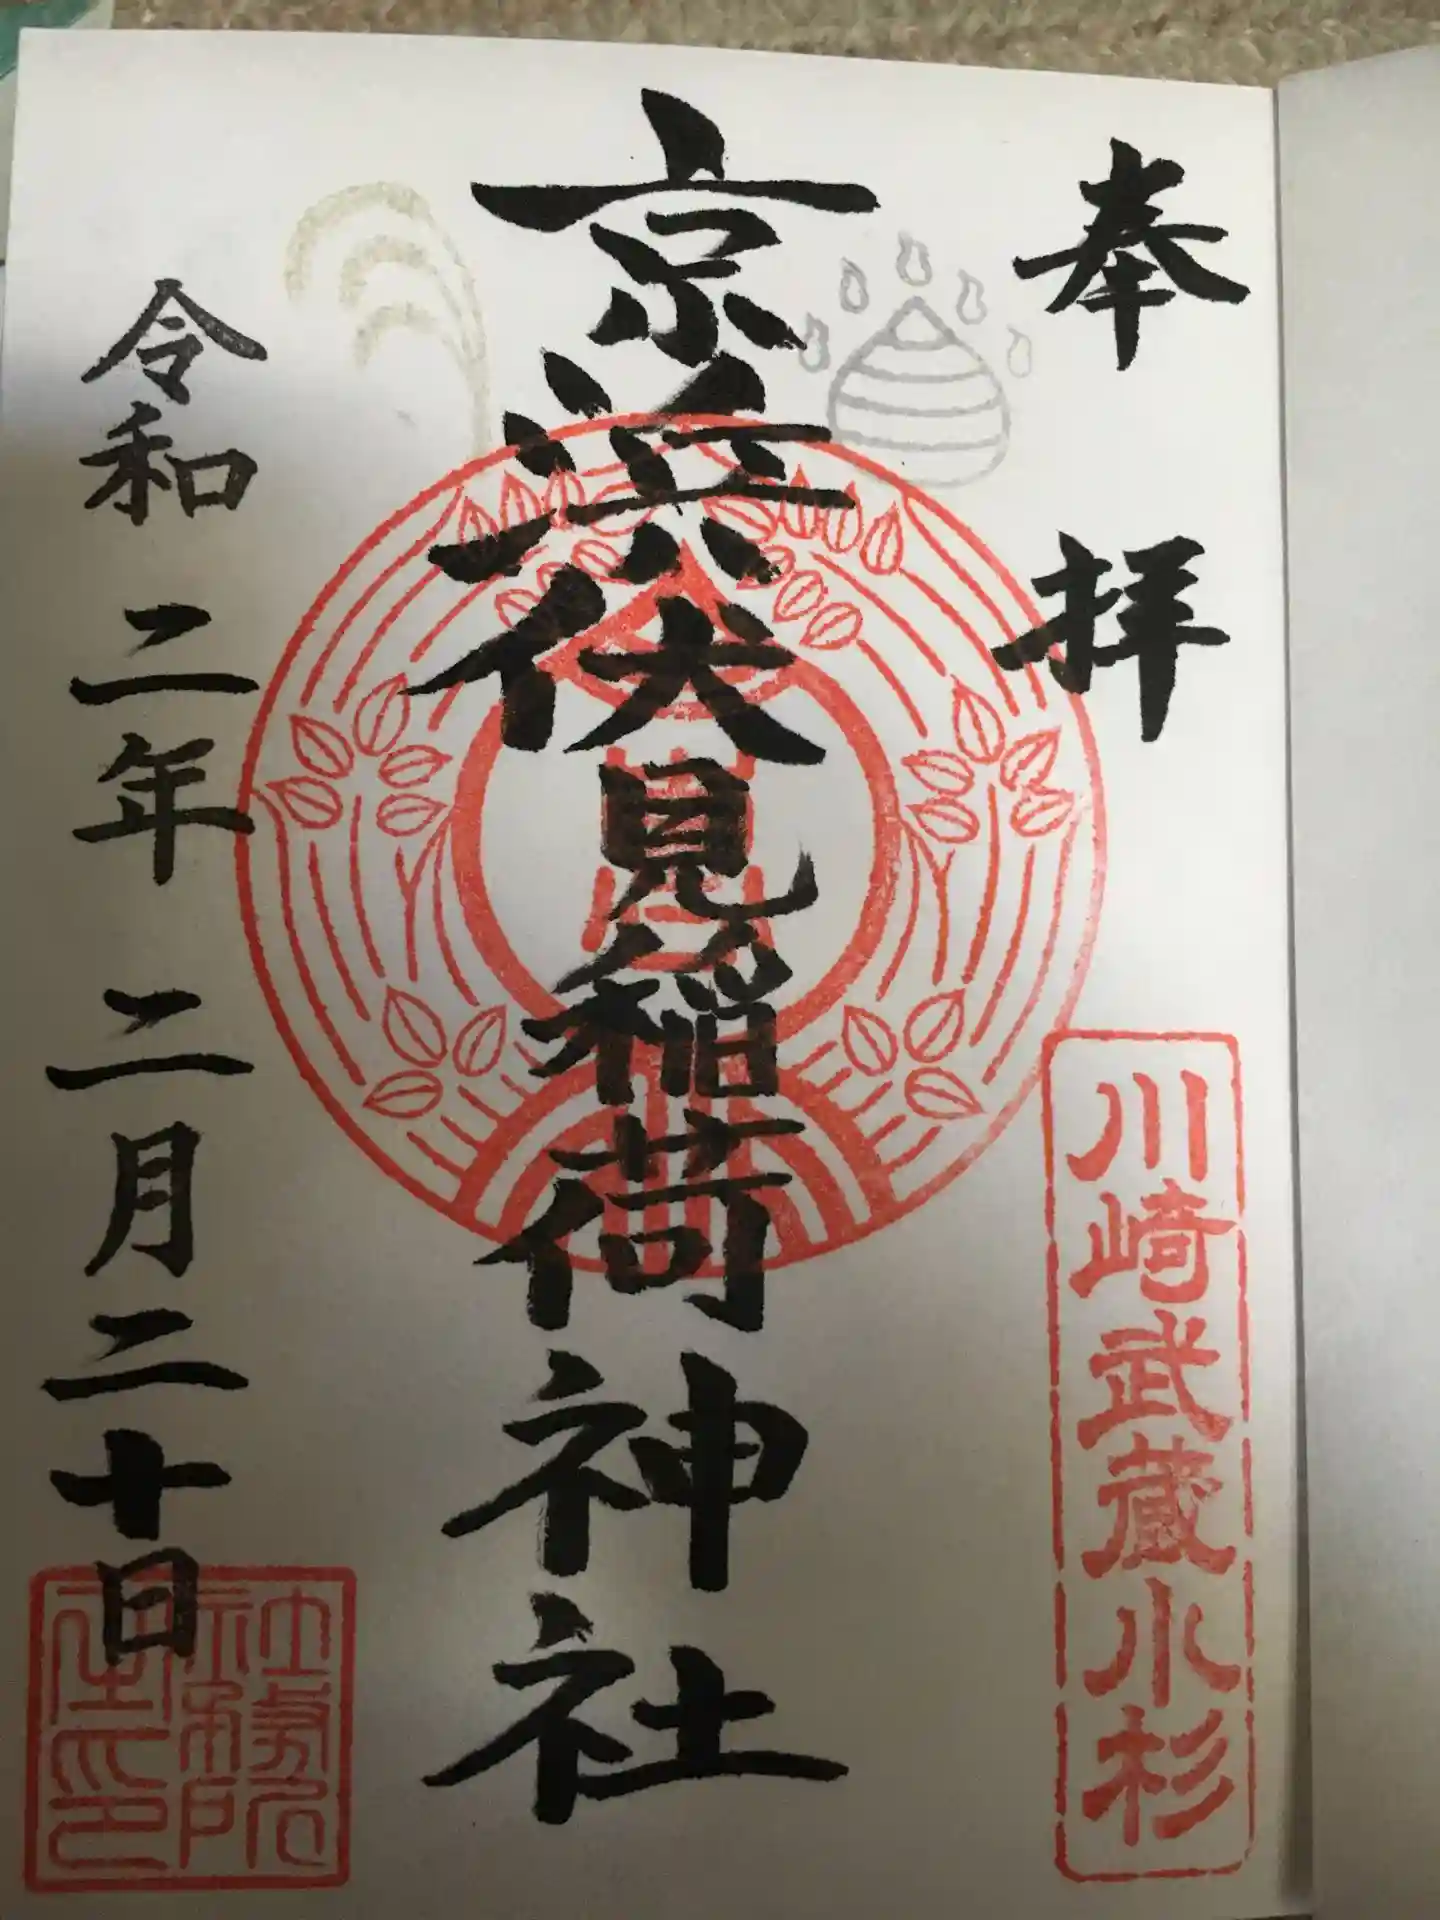 奉拝
川崎武蔵小杉
京浜伏見稲荷神社
令和二年二月二十日
社務所
之印